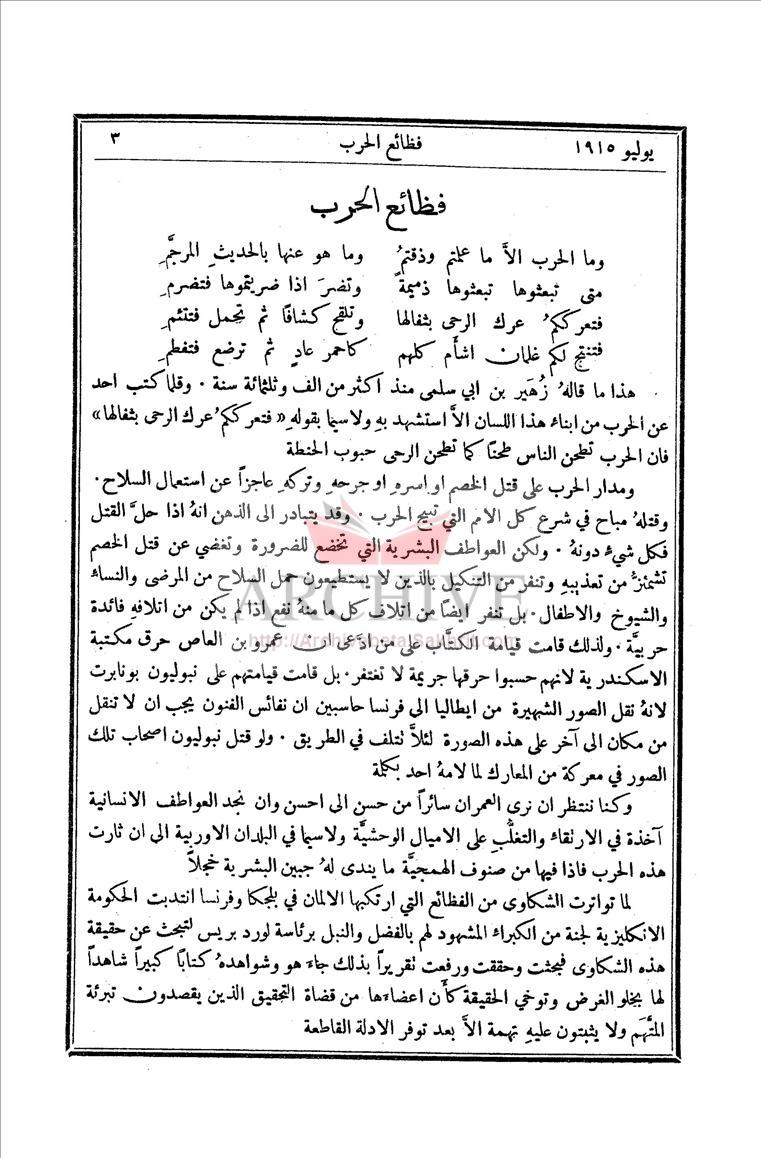 يوليو ١٩١٥ فظائع الحرب ٣
فظائع الحرب
وما الحرب الاَّ ما علمتم وذقتمُ وما هو عنها بالحديثِ المرجَّمِ
متى تبعثوها تبعثوها ذميمةً وتضرَ اذا ضريتموها فتضرمِ
فتعرككمُ عرك الرحى بثفالها وتلقح كشافًا ثم تحمل فتتئمِ
فتنتج لكم غلمان اشأم كلهم كاحمر عادٍ ثم ترضع فتفطمِ
هذا ما قالهُ زُهَير بن ابي سلمى منذ اكثر من الف وثلثمائة سنة . وقلما كتب احد
عن الحرب من ابناء هذا اللسان الاَّ استشهد بهِ ولاسيما بقولهِ « فتعرككمُ عرك الرحى بثفالها »
فان الحرب تطحن الناس طحنًا كما تطحن الرحى حبوب الحنطة
ومدار الحرب على قتل الخصم او اسرهِ او جرحهِ وتركهِ عاجزاً عن استعمال السلاح .
وقتلهُ مباح في شرع كل الامم التي تبيح الحرب . وقد يتبادر الى الذهن انهُ اذا حلَّ القتل
فكل شيءٍ دونهُ . ولكن العواطف البشرية التي تخضع للضرورة وتغضي عن قتل الخصم
تشمئزُّ من تعذيبهِ وتنفر من التنكيل بالذين لا يستطيعون حمل السلاح من المرضى والنساء
والشيوخ والاطفال . بل تنفر ايضًا من اتلاف كل ما منهُ نفع اذا لم يكن من اتلافهِ فائدة
حربيَّة . ولذلك قامت قيامة الكتَّاب على من ادَّعى ان عمرو بن العاص حرق مكتبة
الاسكندرية لانهم حسبوا حرقها جريمة لا تغتفر . بل قامت قيامتهم على نبوليون بونابرت
لانهُ نقل الصور الشهيرة من ايطاليا الى فرنسا حاسبين ان نفائس الفنون يجب ان لا تنقل
من مكان الى آخر على هذه الصورة لئلاَّ تتلف في الطريق . ولو قتل نبوليون اصحاب تلك
الصور في معركة من المعارك لما لامهُ احد بكلمة
وكنا ننتظر ان نرى العمران سائراً من حسن الى احسن وان نجد العواطف الانسانية
آخذة في الارتقاء والتغلُّب على الاميال الوحشيَّة ولاسيما في البلدان الاوربية الى ان ثارت
هذه الحرب فاذا فيها من صنوف الهمجيَّة ما يندى لهُ جبين البشرية خجلاً
لما تواترت الشكاوى من الفظائع التي ارتكبها الالمان في بلجكا وفرنسا انتدبت الحكومة
الانكليزية لجنة من الكبراء المشهود لهم بالفضل والنبل برئاسة لورد بريس لتبحث عن حقيقة
هذه الشكاوى فبحثت وحققت ورفعت تقريراً بذلك جاء هو وشواهدهُ كتابًا كبيراً شاهداً
لها بخلو الغرض وتوخي الحقيقة كأن اعضاءها من قضاة التحقيق الذين يقصدون تبرئة
المتَّهم ولا يثبتون عليهِ تهمة الاَّ بعد توفر الادلة القاطعة
ARCHIVE
http://Archivebeta.Sakhrit.com